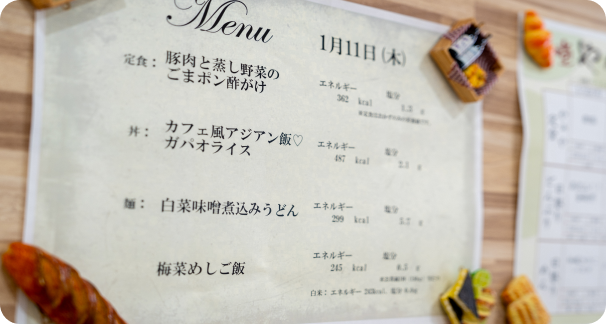 Menu
1月11日(木)
定食： 豚肉と蒸し野菜の
ごまポン酢がけ
エネルギー 塩分
562 kcal
丼： カフェ風アジアン飯♡
ガパオライス
エネルギー 塩分
487 kcal
麺： 白菜味噌煮込みうどん
エネルギー 塩分
299 kcal
梅菜めしご飯
エネルギー 塩分
245 kcal
白米： エネルギー 塩分